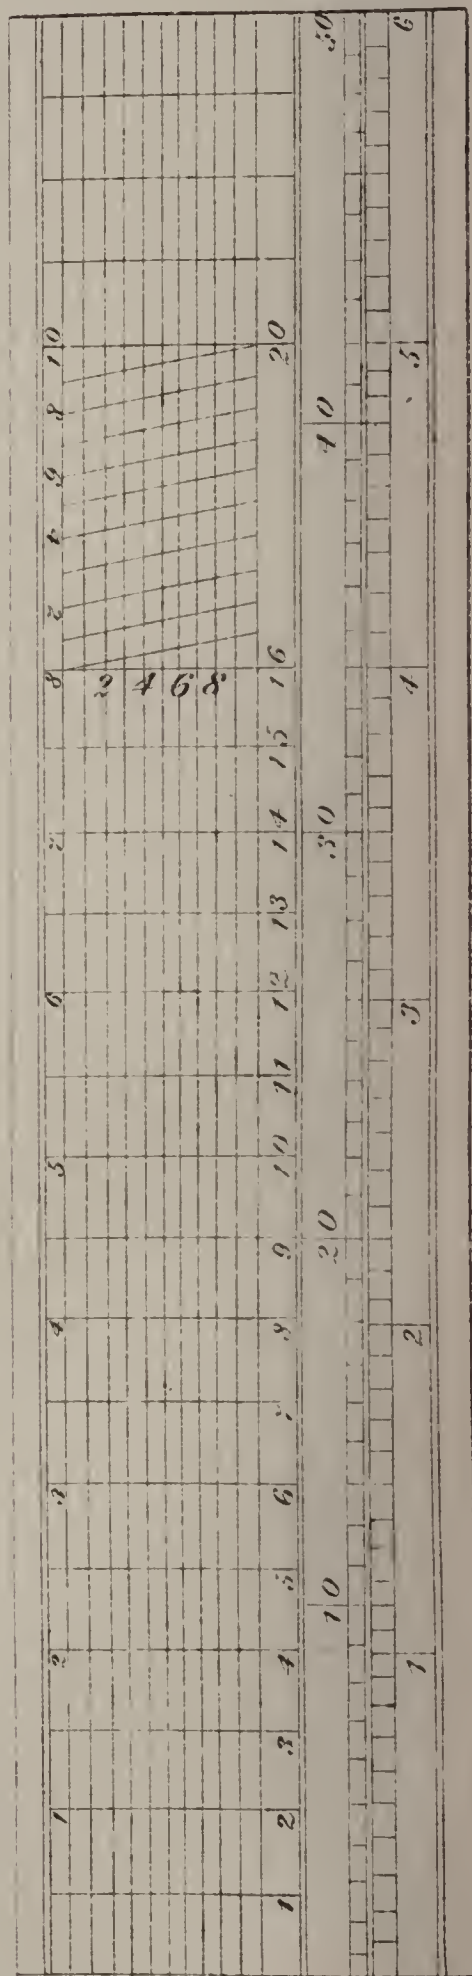 1 2 3 4 5 6 7 8 2 4 6 8 10
2
4
6
8
1 2 3 4 5 6 7 8 9 10 11 12 13 14 15 16 20
10 20 30 40 50
1 2 3 4 5 6